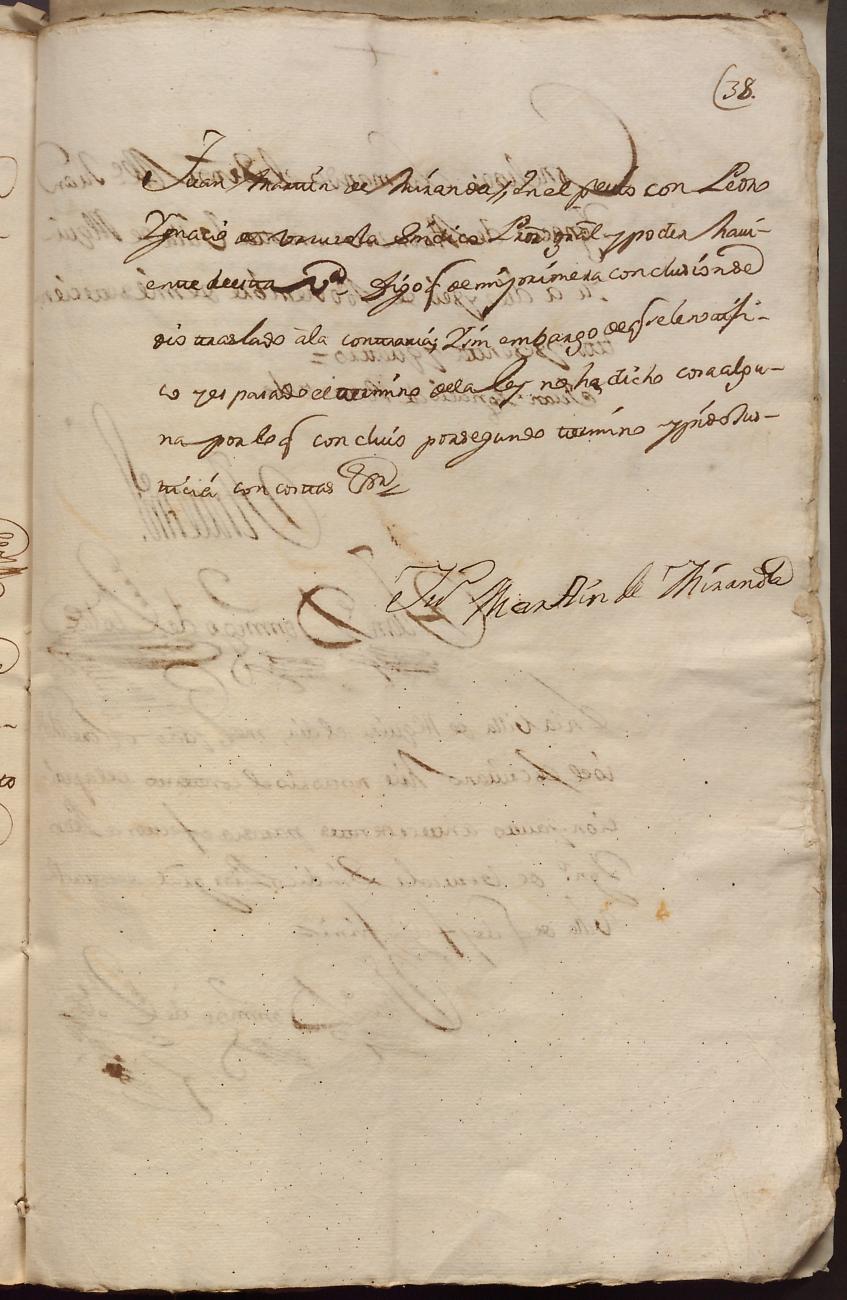 (38.
Juan Martin de Miranda, En el pleito con Pedro
Ygnacio de Sindico Pror. gral y poder havi-
ente de esta Va Digo q de mi primera conclusion se
dio traslado à la contraria; Y sin embargo de q se le notifi-
co y es pasado el termino de la ley no ha dicho cosa algu-
na por lo q concluio por segundo termino y pido Jus-
ticia con costas
Jn Martin de Miranda